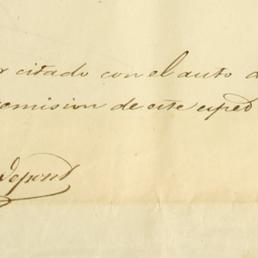 citado con el auto d
omision de este exped